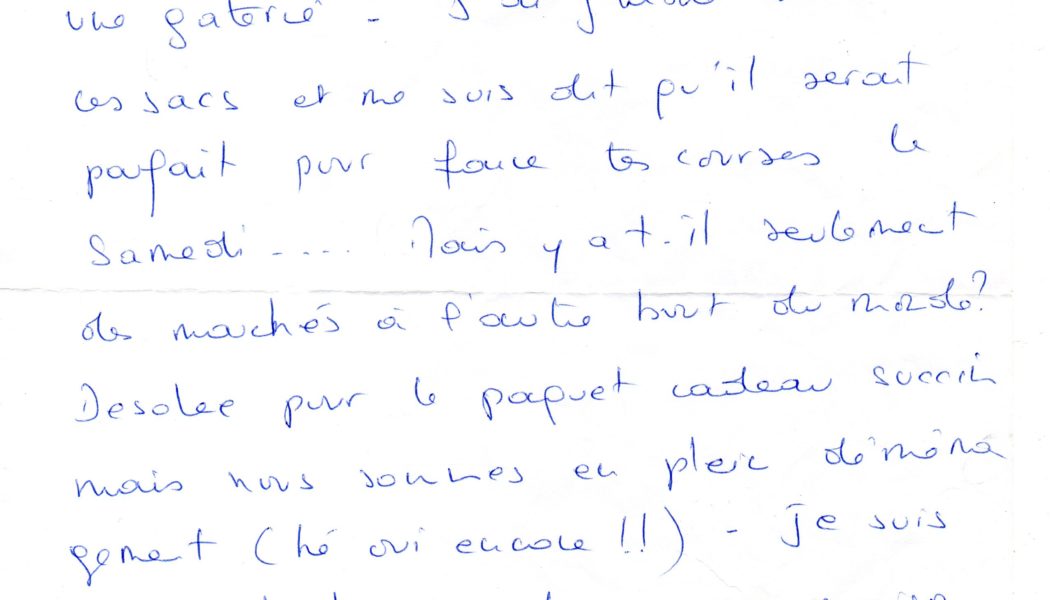 une galerie - J'ai
ces sacs et me suis dit qu'il serait
parfait pour faire tes courses le
Samedi ..... Mais y a t-il seulement
des marchés à l'autre bout du monde?
Desolee pour le paquet cadeau succin
mais nous sommes en plein déména
gement (hé oui encore !!) - Je suis